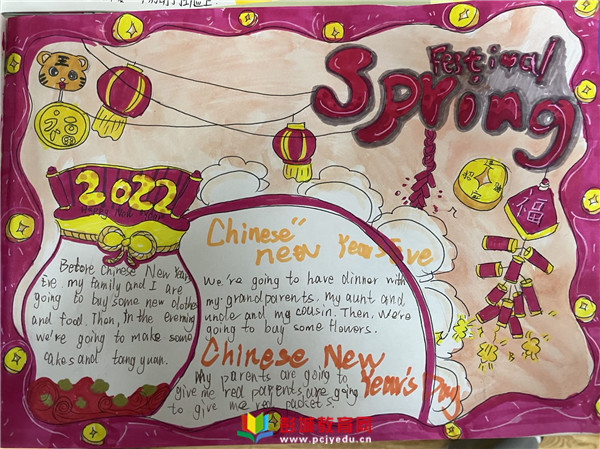 Festival
Spring
福
2022
福
Chinese"
new Year's Eve
Before Chinese New Year
Eve. my family and I are
going to buy some new clothes
and food. Then, In the evening
we're going to make some
cakes and tang yuan.
We're going to have dinner with
my grandparents. my aunt and
uncle and my cousin. Then. We're
going to buy some flowers.
Chinese New
Year's Day
My parents are going to
give me red parents, are going
to give me red pockets.
www.pcjyedu.cn